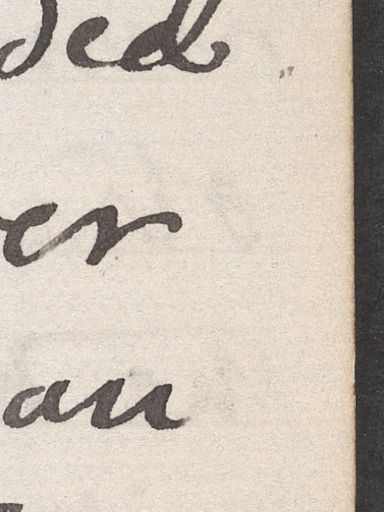 ded
er
an